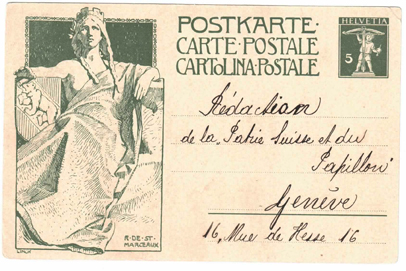 POSTKARTE·
CARTE·POSTALE
CARTOLINA·POSTALE
HELVETIA
5
Rédaction
de la „Patrie Suisse et du
Papillon"
Genève
16, Rue de Hesse 16
R·DE·ST·
MARCEAUX